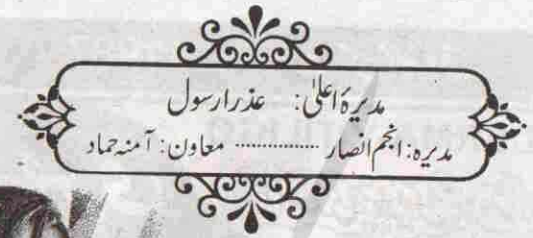 مدیرۂ اعلیٰ: عذرا رسول
مدیرہ: انجم انصار ............... معاون: آمنہ حماد